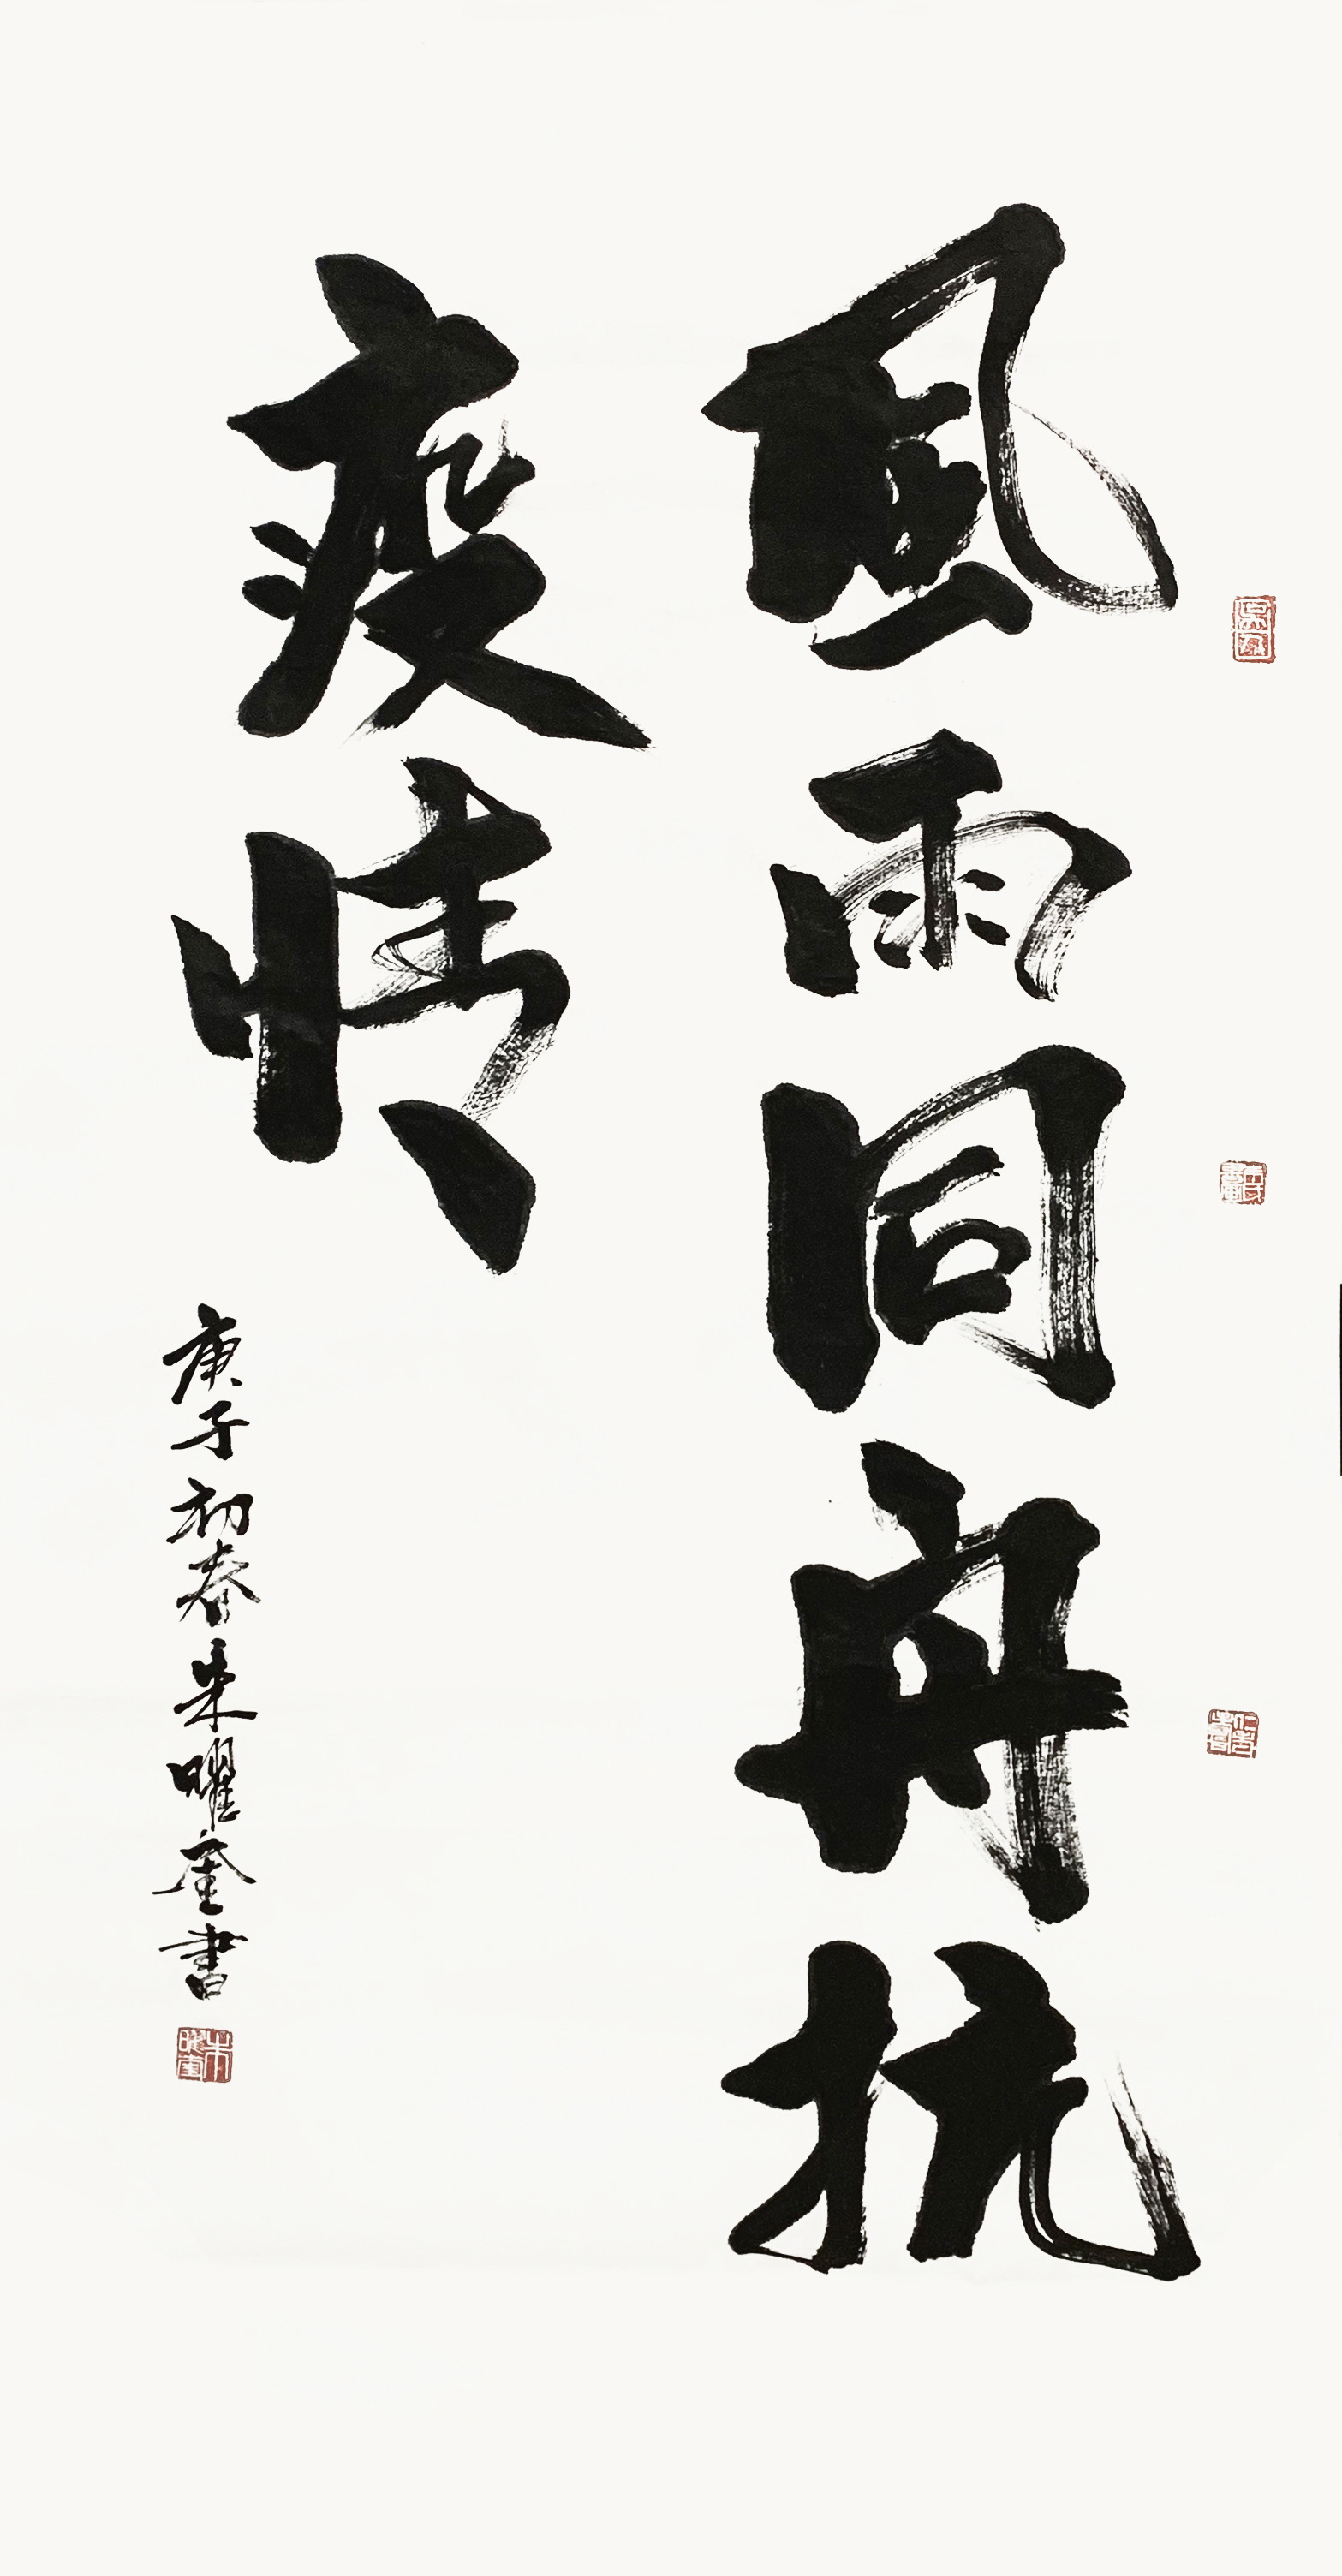 風雨同舟抗
疫情
庚子初春朱曜奎書